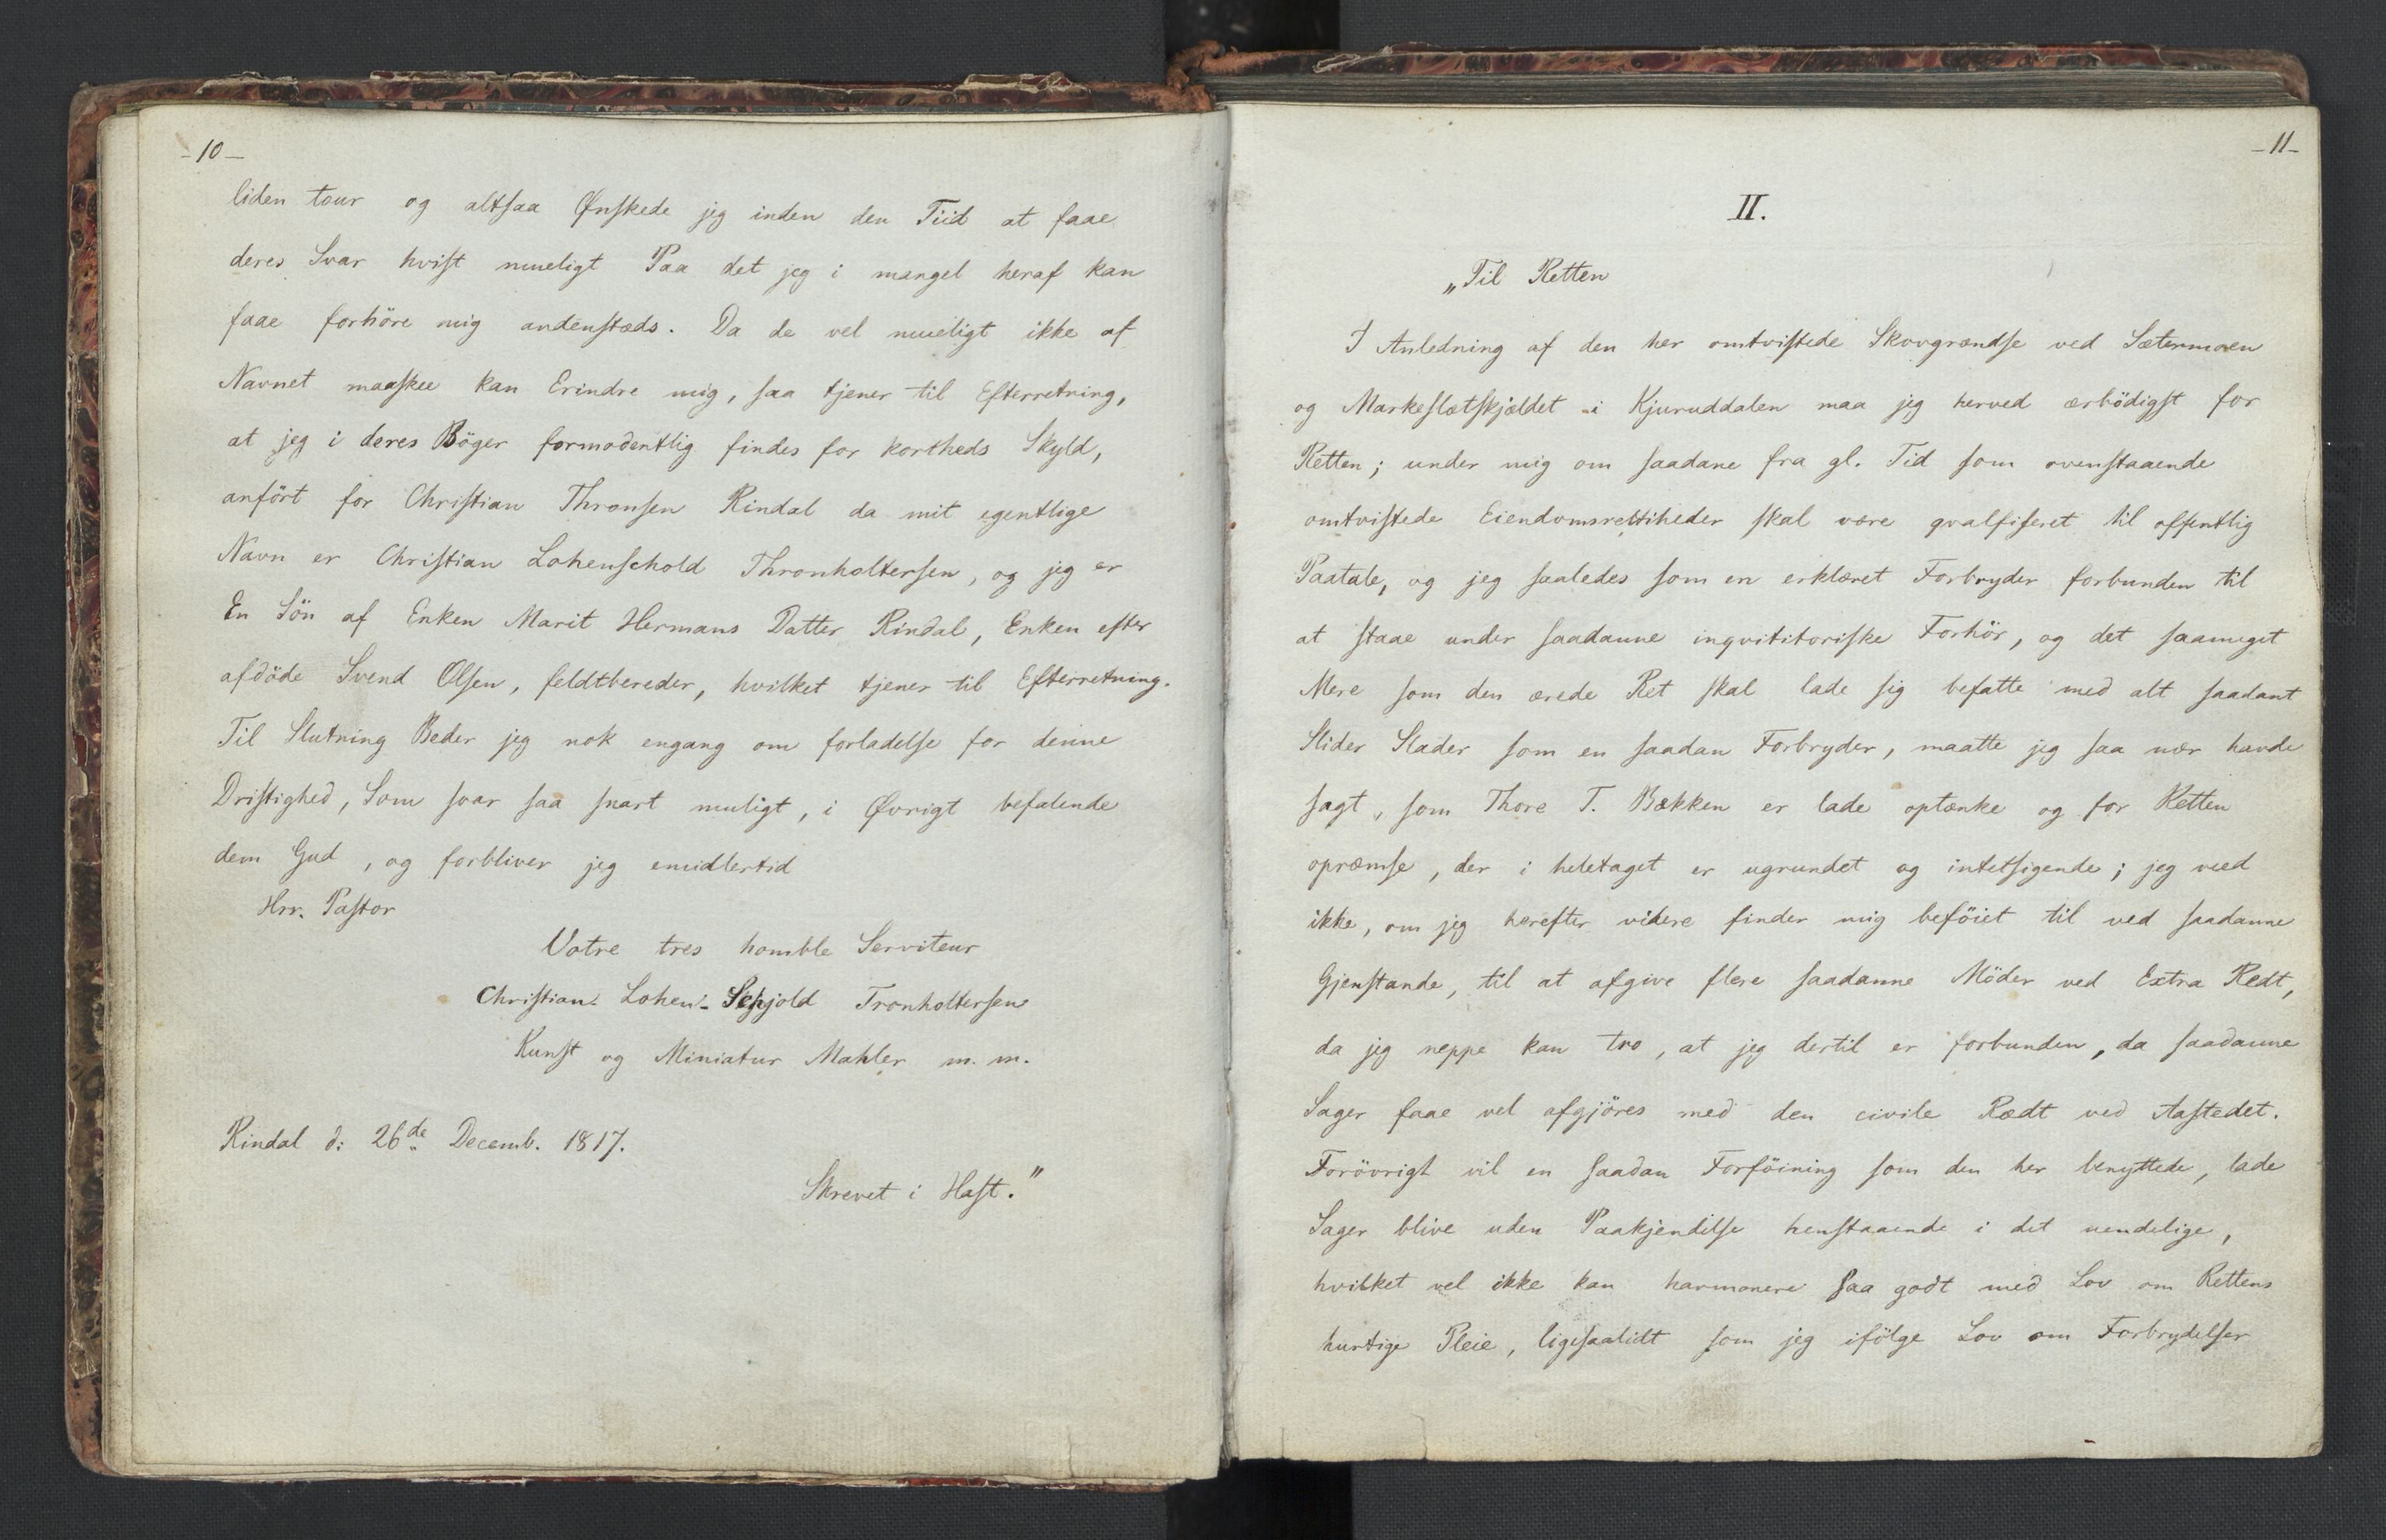 -10-
liden tour og altsaa Ønskede jeg inden den Tiid at faae
deres Svar hvist mueligt Paa det jeg i mangel heraf kan
faae forhöre mig andenstæds. Da de vel mueligt ikke af
Navnet maaskee kan Erindre mig, saa tjener til Efterretning,
at jeg i deres Böger formodentlig findes for kortheds Skyld,
anfört for Christian Thronsen Rindal da mit egentlige
Navn er Christian Lohenschold Thronholtersen, og jeg er
En Sön af Enken Marit Hermans Datter Rindal, Enken efter
afdöde Svend Olsen, feldtbereder, hvilket tjener til Efterretning.
Til Slutning Beder jeg nok engang om forladelse for denne
Dristighed, Som svar saa snart muligt, i Øvrigt befalende
dem Gud, og forbliver jeg emidlertid
Hrr. Pastor
Votre tres homble Serviteur
Christian- Lohen- Schjold Tronholtersen
Kunst og Miniatur Mahler m. m.
Rindal d: 26de Decemb. 1817.
Skrevet i Hast."
-11-
II.
„Til Retten
I Anledning af den her omtvistede Skovgrændse ved Sætermoen
og Markeslætskjældet i Kjøruddalen maa jeg herved ærbödigst for
Retten; under mig om saadane fra gl. Tid som ovenstaaende
omtvistede Eiendomsrettiheder skal være qvalfiseret til offentlig
Paatale, og jeg saaledes som en erklæret Forbryder forbunden til
at staae under saadanne inqvititoriske Forhör, og det saameget
Mere som den ærede Ret skal lade sig befatte med alt saadant
Slider Slader som en saadan Forbryder, maatte jeg saa nær havde
sagt, som Thore T. Bækken er lade optænke og for Retten
opræmse, der i heletaget er ugrundet og intetsigende; jeg veed
ikke, om jeg herefter videre finder mig beföiet til ved saadanne
Gjenstande, til at afgive flere saadanne Möder ved Extra Redt,
da jeg neppe kan tro, at jeg dertil er forbunden, da saadanne
Sager faae vel afgjöres med den civile Rædt ved Aastedet.
Forövrigt vil en saadan Forföining som den her benyttede, lade
Sager blive uden Paakjendilse henstaaende i det uendelige,
hvilket vel ikke kan harmonere saa godt med Lov om Rettens
hurtige Pleie, ligesaalidt som jeg ifölge Lov om Forbrydelser